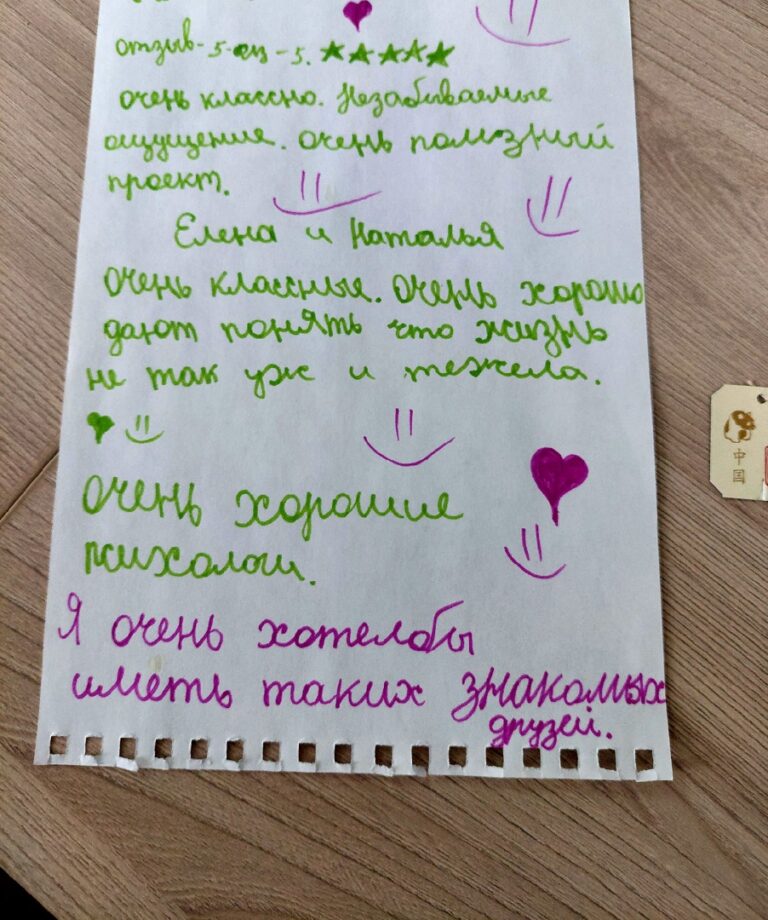 отзыв-5-оц-5. ★★★★★
очень классно. Незабываемые
ощущщение. очень полезный
проект.
Елена и Наталья
Очень классные. Очень хорошо
дают понять что жизнь
не так уж и тежела.
Очень хорошие
психологи.
Я очень хотелобы
иметь таких знакомых
друзей.
中
国